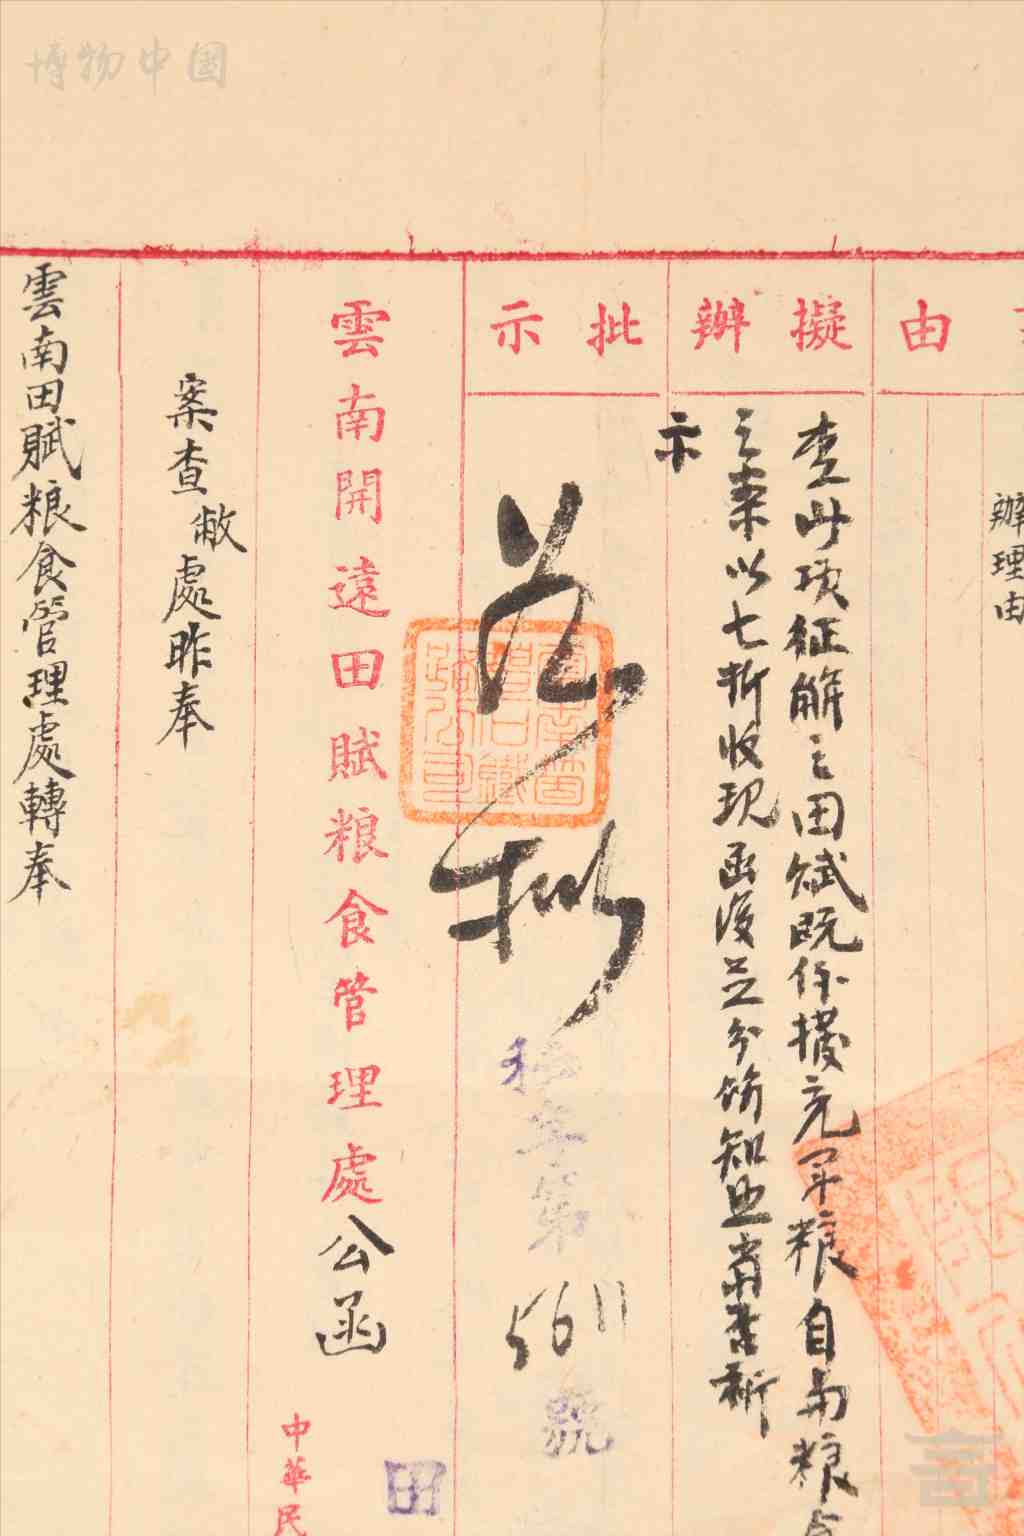 博物中国
由
辦理由
擬辦
查此項征解之田賦既係撥充軍粮自南粮
之案以七折收現函復並分飭知照當否祈
示
批示
為擬
年第5611號
雲南開遠田賦粮食管理處公函
田
中華民
案查敝處昨奉
雲南田賦粮食管理處轉奉